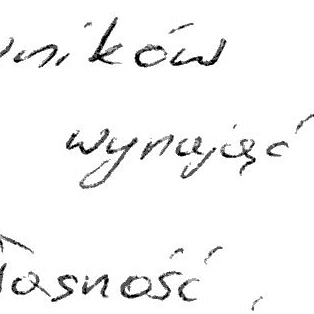 wników
wynająć
łasność,